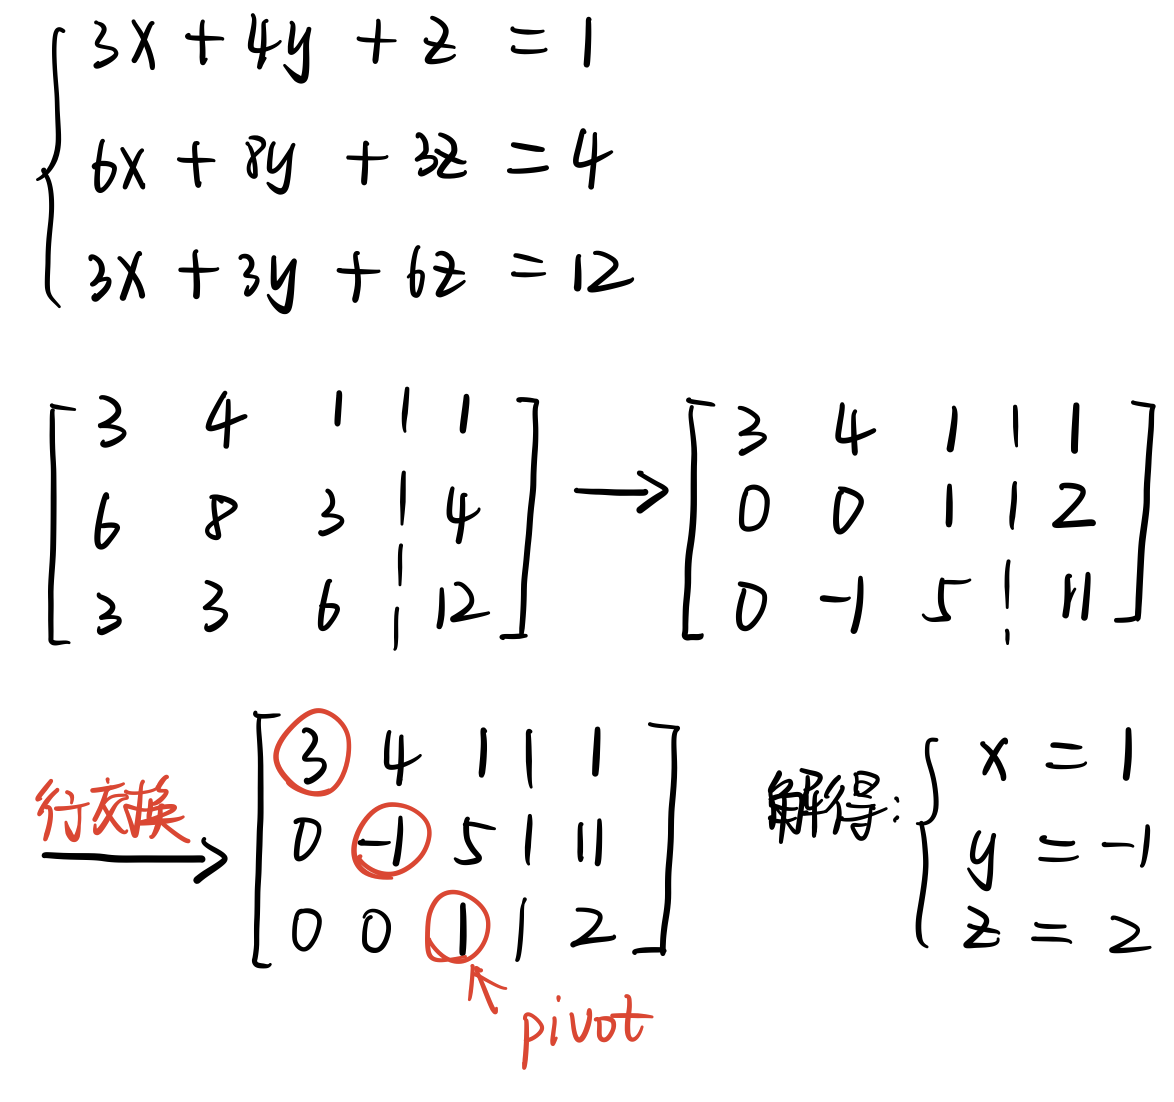 3x + 4y + z = 1
6x + 8y + 3z = 4
3x + 3y + 6z = 12
3 4 1 | 1 → 3 4 1 | 1
6 8 3 | 4 0 0 1 | 2
3 3 6 | 12 0 -1 5 | 11
行交换 →
3 4 1 | 1
0 -1 5 | 11
0 0 1 | 2
pivot
解得:
x = 1
y = -1
z = 2